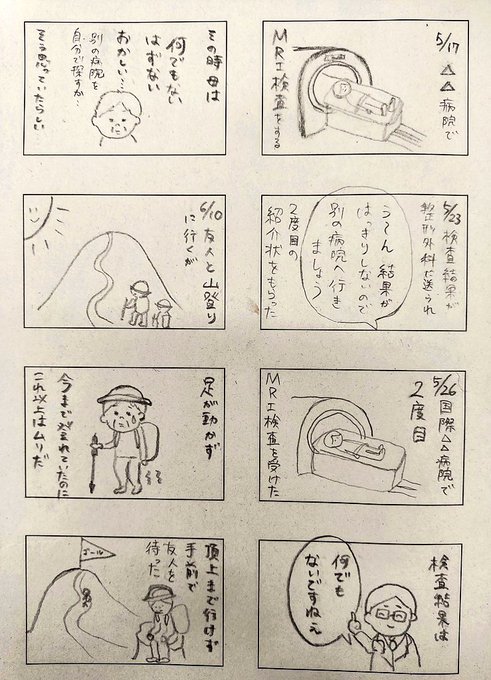 5/17 △△病院で
MRI検査をする
5/23 検査結果が
整形外科に送られ
う〜ん 結果が
はっきりしないので
別の病院へ行き
ましょう
2度目の
紹介状をもらった
5/26 国際△△病院で
2度目
MRI検査を受けた
検査結果は
何でも
ないですねえ
その時母は
何でもない
はずない
おかしい…
別の病院を
自分で探すか…
そう思っていたらしい
6/10 友人と山登り
に行くが
足が動かず
今まで登れていたのに
これ以上はムリだ
頂上まで行けず
手前で
友人を
待った
ゴール